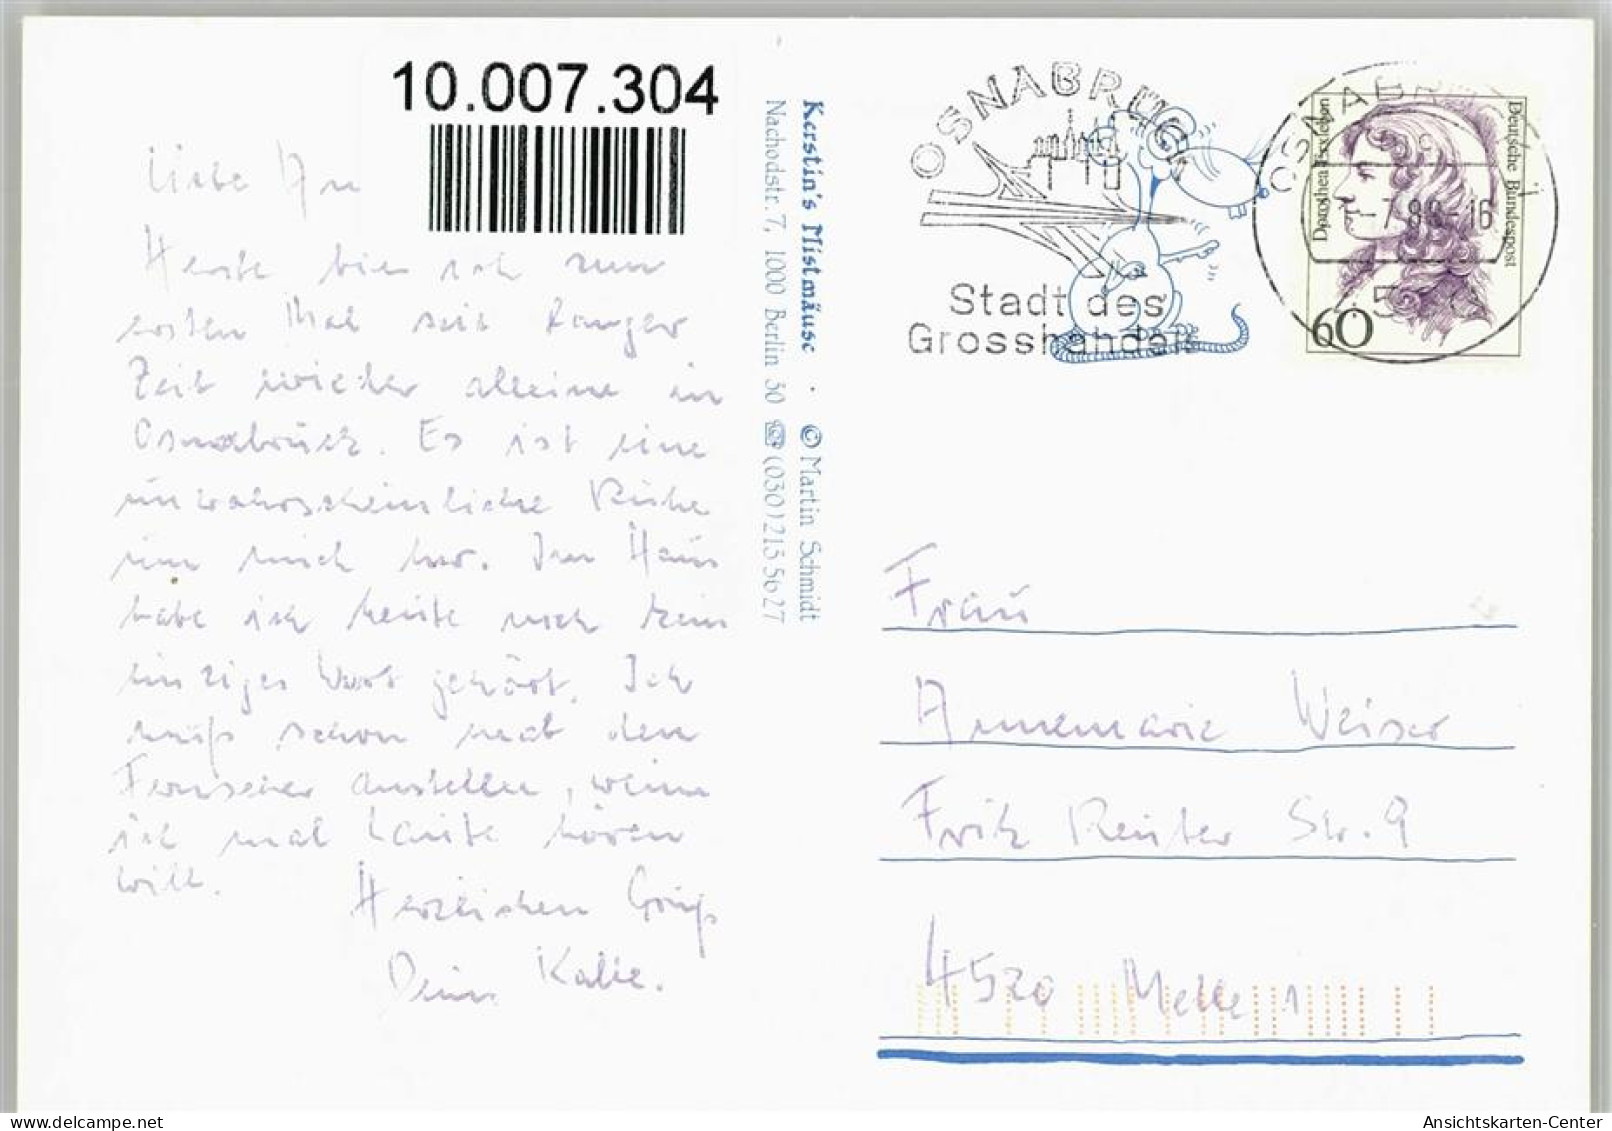 10.007.304
Liebe An
Heute bin ich zum
ersten Mal seit langer
Zeit wieder alleine in
Osnabrück. Es ist eine
unwahrscheinliche Ruhe
um mich her. Im Haus
habe ich heute noch kein
einziges Wort gehört. Ich
muß schon mal den
Fernseher anstellen, wenn
ich mal Laute hören
will.
Herzlichen Gruß
Dein Kalle.
Kerstin's Mistmäuse · © Martin Schmidt
Nachodstr. 7, 1000 Berlin 30 ☏ (030) 213 56 27
OSNABRÜCK
Stadt des
Grosshandels
OSNABRÜCK
-7.88-16
Dorothea Erxleben
Deutsche Bundespost
60
Frau
Annemarie Weiser
Fritz Reuter Str. 9
4520 Melle 1
Ansichtskarten-Center